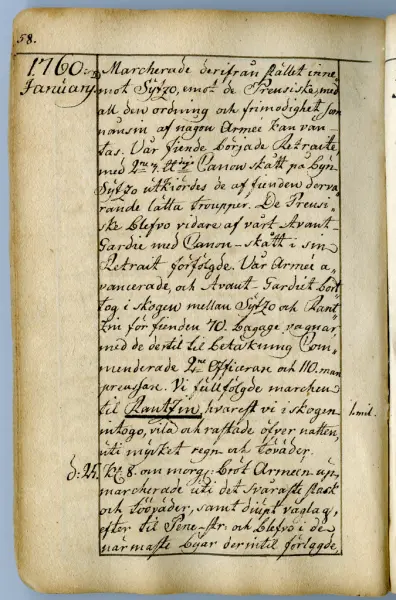 58.
1760.
January.
Marcherade derifrån stället inne
mot Sÿtzo, emot de Preusiske, med
all den ordning och frimodighet som
nånsin af någon Armée kan vän-
tas. Vår fiende började Retraite,
med 2ne Canon skått på Bÿn
Sÿtzo utkiördes de af fienden derva-
rande lätta troupper. De Preusi-
ske blefvo vidare af vårt Avant-
Gardie med Canon-skått i sin
Retrait förfölgde. Vår Armée a-
vancerade, och Avant-Gardiet bort
tog i skogen mellan Sÿtzo och Rant-
zin för fienden 70. bagage vagnar
med de dertil til betäkning Com-
menderade 2ne Officerare och 110. man
preussare. Vi fullfölgde marchen
til Rantzin, hvarest vi i skogen
intogo, vila och rastade öfver natten,
uti mÿcket regn och töväder.
½ mil.
d: 25.
Kl 8. om morg: bröt Armeén up,
marcherade uti det svåraste slask
och töväder, samt diupt väglag,
efter til Pene-str: och blefvo i de
närmaste bÿar derintil förlagde